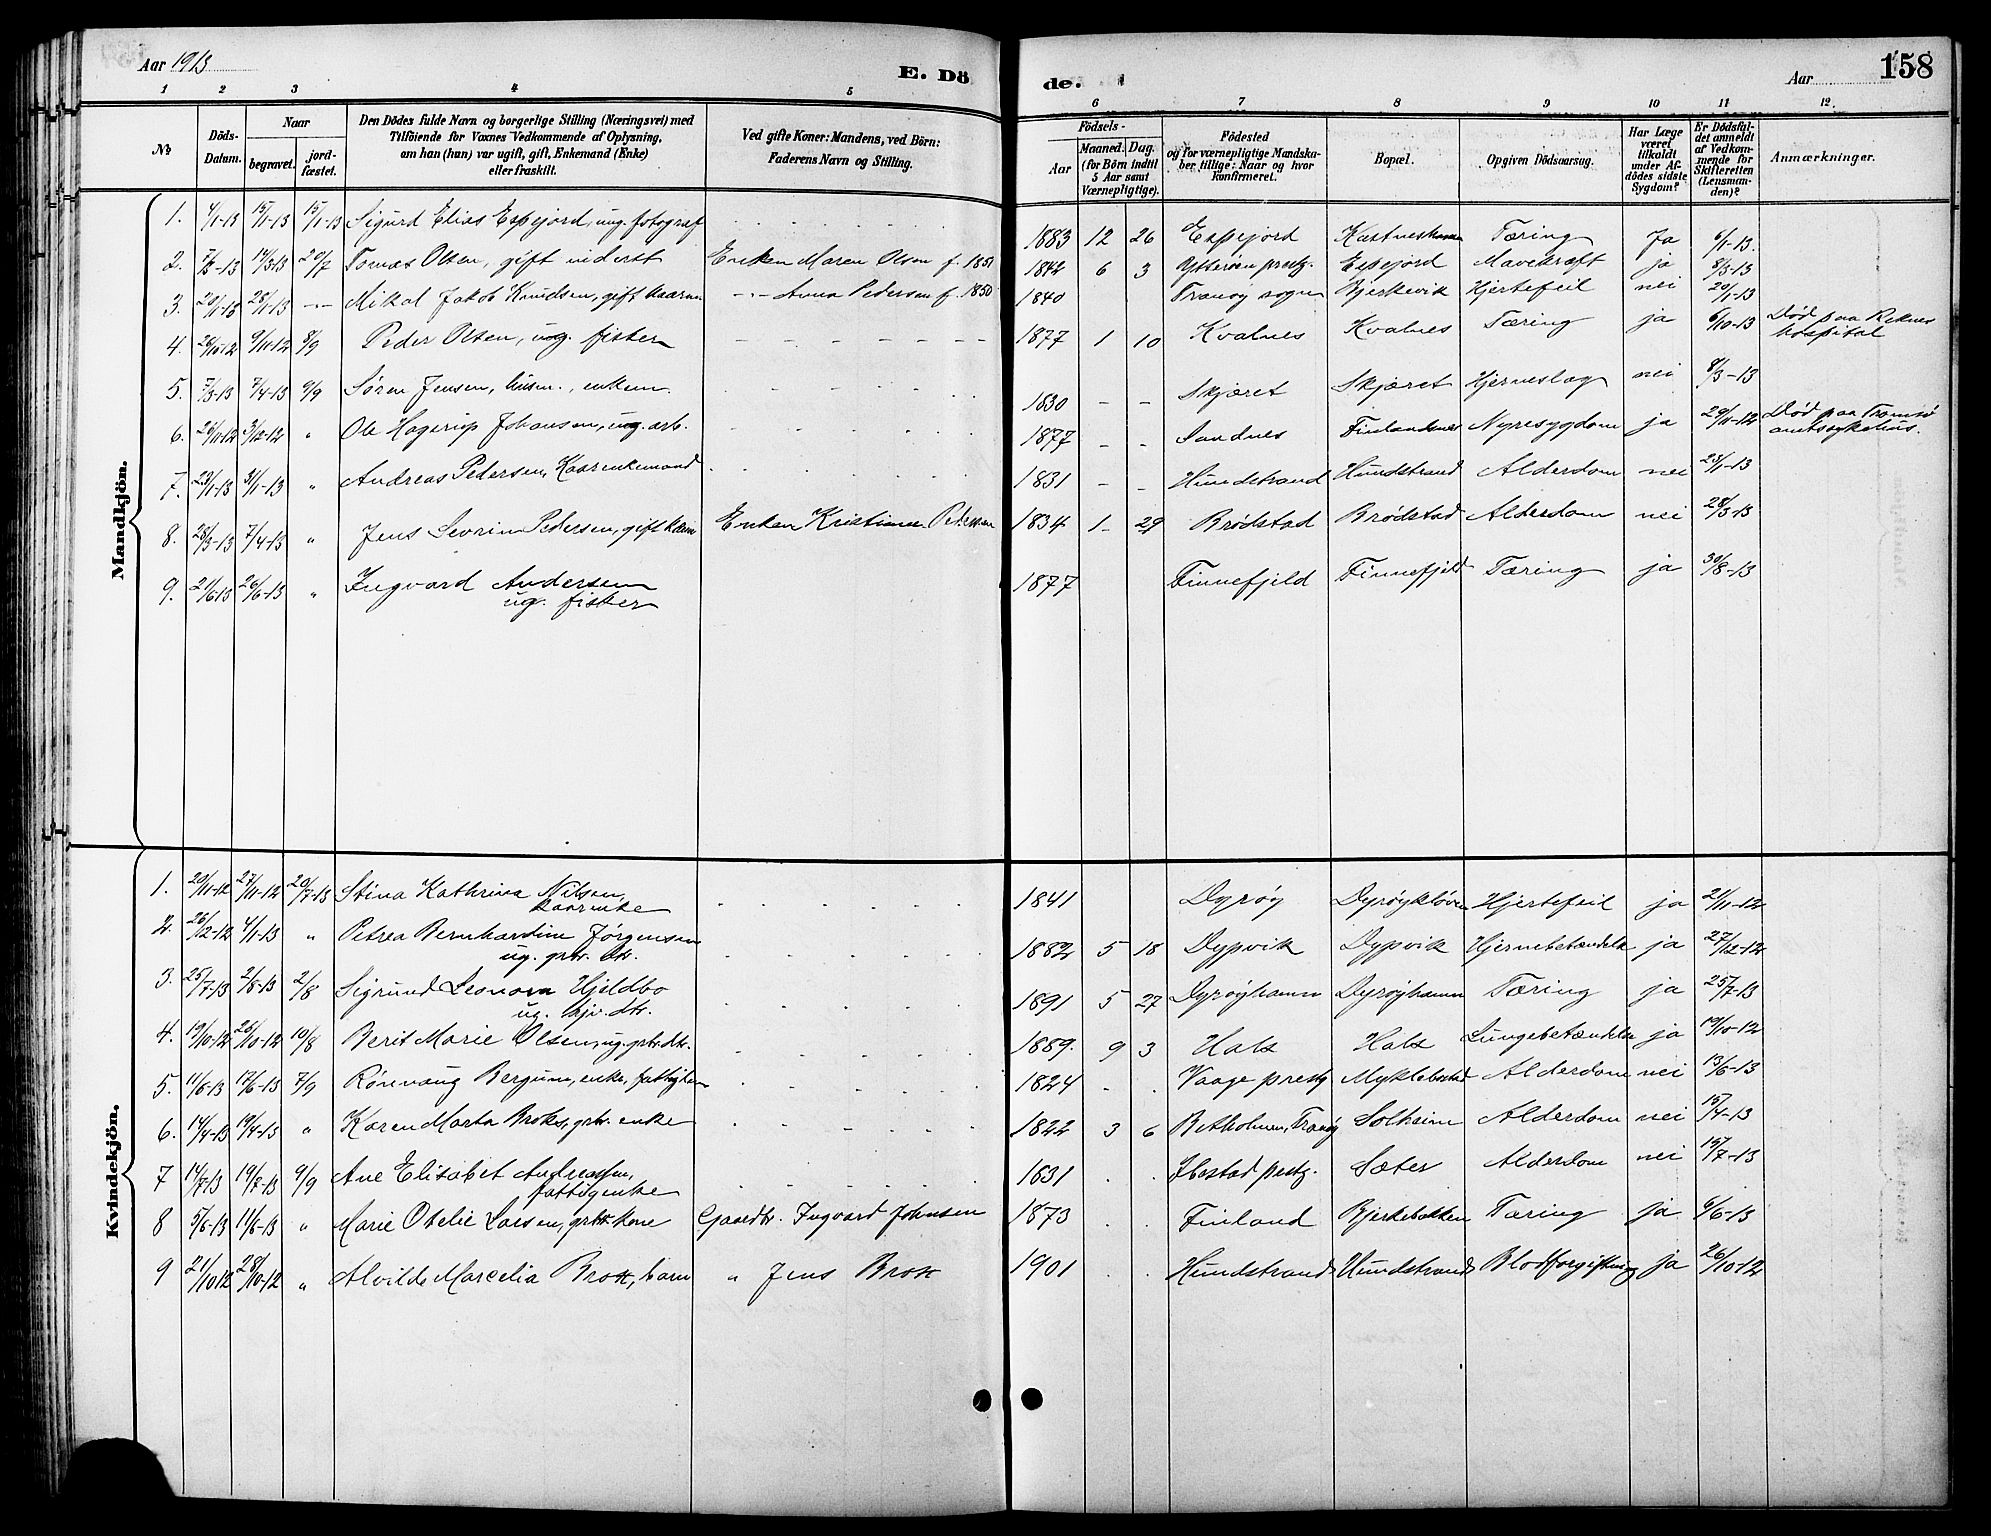 Aar 1913
E. Dö
de.
Aar
158
1 2 3 4 5 6 7 8 9 10 11 12.
№
Döds-Datum.
Naar
begravet.
jord-fæstet.
Den Dödes fulde Navn og borgerlige Stilling (Næringsvei) med
Tilföiende for Voxnes Vedkommende af Oplysning,
om han (hun) var ugift, gift, Enkemand (Enke)
eller fraskilt.
Ved gifte Koner: Mandens, ved Börn:
Faderens Navn og Stilling.
Födsels-
Aar
Maaned. Dag.
(for Börn indtil
5 Aar samt
Værnepligtige).
Födested
og for værnepligtige Mandska-
ber tillige: Naar og hvor
konfirmeret.
Bopæl.
Opgiven Dödsaarsag.
Har Læge
været
tilkaldt
under Af-
dödes sidste
Sygdom?
Er Dödsfal-
det anmeldt
af Vedkom-
mende for
Skifteretten
(Lensman-
den)?
Anmærkninger.
Mandkjön.
1. 4/1-13 15/1-13 15/1-13 Sigurd Elias Espejord, ug. fotograf 1883 12 26 Espejord Kastneshamn Tæring Ja 6/1-13.
2. 7/3-13 14/3-13 20/7 Tomas Olsen, gift inderst Enken Maren Olsen f. 1851 1842 6 3 Ytterøen prestg. Espejord Mavekræft ja 8/3-13
3. 20/1-13 28/1-13 -"- Mikal Jakob Knudsen, gift kaarm -"- Anna Pedersen f. 1850 1840 Tranøy sogn Bjerkevik Hjertefeil nei 20/1-13
4. 26/10-12 9/11-12 8/9 Peder Olsen, ug. fisker 1877 1 10 Kvalnes Kvalnes Tæring ja 6/10-13 Død paa Reknes hospital
5. 7/3-13 7/4-13 9/9 Søren Jensen, husm., enkem. 1830 - - Skjæret Skjæret Hjerneslag nei 8/3-13
6. 26/11-12 3/12-12 " Ole Hagerup Johansen, ug. arb. 1877 - - Sandnes Finlandsnes Nyresygdom ja 29/11-12 Død paa Tromsø amtssykehus.
7. 23/1-13 31/1-13 " Andreas Pedersen, Kaarenkemand 1831 - - Hundstrand Hundstrand Alderdom nei 23/1-13
8. 28/3-13 7/4-13 " Jens Sevrin Pedersen, gift kaarm Enken Kristianna Pedersen 1834 1 29 Brödstad Brödstad Alderdom nei 28/3-13
9. 21/6-13 26/6-13 " Ingvard Andersen 1877 Finnefjeld Finnefjeld Tæring ja 30/8-13
ug. fisker
Kvindekjön.
1. 20/11-12 27/11-12 20/7-13 Stina Kathrina Nilsen, 1841 Dyrøy Dyrøykløven Hjertefeil ja 21/11-12
kaarenke
2. 26/12-12 4/1-13 " Petrea Bernhardine Jørgensen 1882 5 18 Dypvik Dypvik Hjernebetændelse ja 27/12-12
ug. gbr. dtr.
3. 25/7-13 2/8-13 2/8 Sigrund Leonora Hjeldbo 1891 5 27 Dyrøyhamn Dyrøyhamn Tæring ja 25/7-13
ug. hjv. dtr.
4. 19/10-12 26/10-12 10/8 Berit Marie Olsen, ug. gbr. dtr. 1889. 9 3 Hals Hals Lungebetændelse ja 19/10-12
5. 11/6-13 17/6-13 7/9 Rønnaug Bergum, enke, fattiglem 1824 Vaage prestg Myklebostad Alderdom nei 13/6-13
6. 14/4-13 19/4-13 " Karen Marta Broks, gbr. enke 1822 3 6 Betholmen, Tranøy Solheim Alderdom nei 15/4-13
7 14/7-13 19/7-13 9/9 Ane Elisabet Andreassen, 1831 Ibestad prestg. Sæter Alderdom nei 15/7-13
fattigenke
8 5/6-13 11/6-13 " Marie Otelie Larsen, gbr. kone Gaardbr. Ingvard Johnsen 1873 Finland Bjerkebakken Tæring ja 6/6-13
9 21/10-12 28/10-12 " Alvilde Marcelia Brox, barn " Jens Brox 1901 Hundstrand Hundstrand Blodforgiftning ja 26/10-12